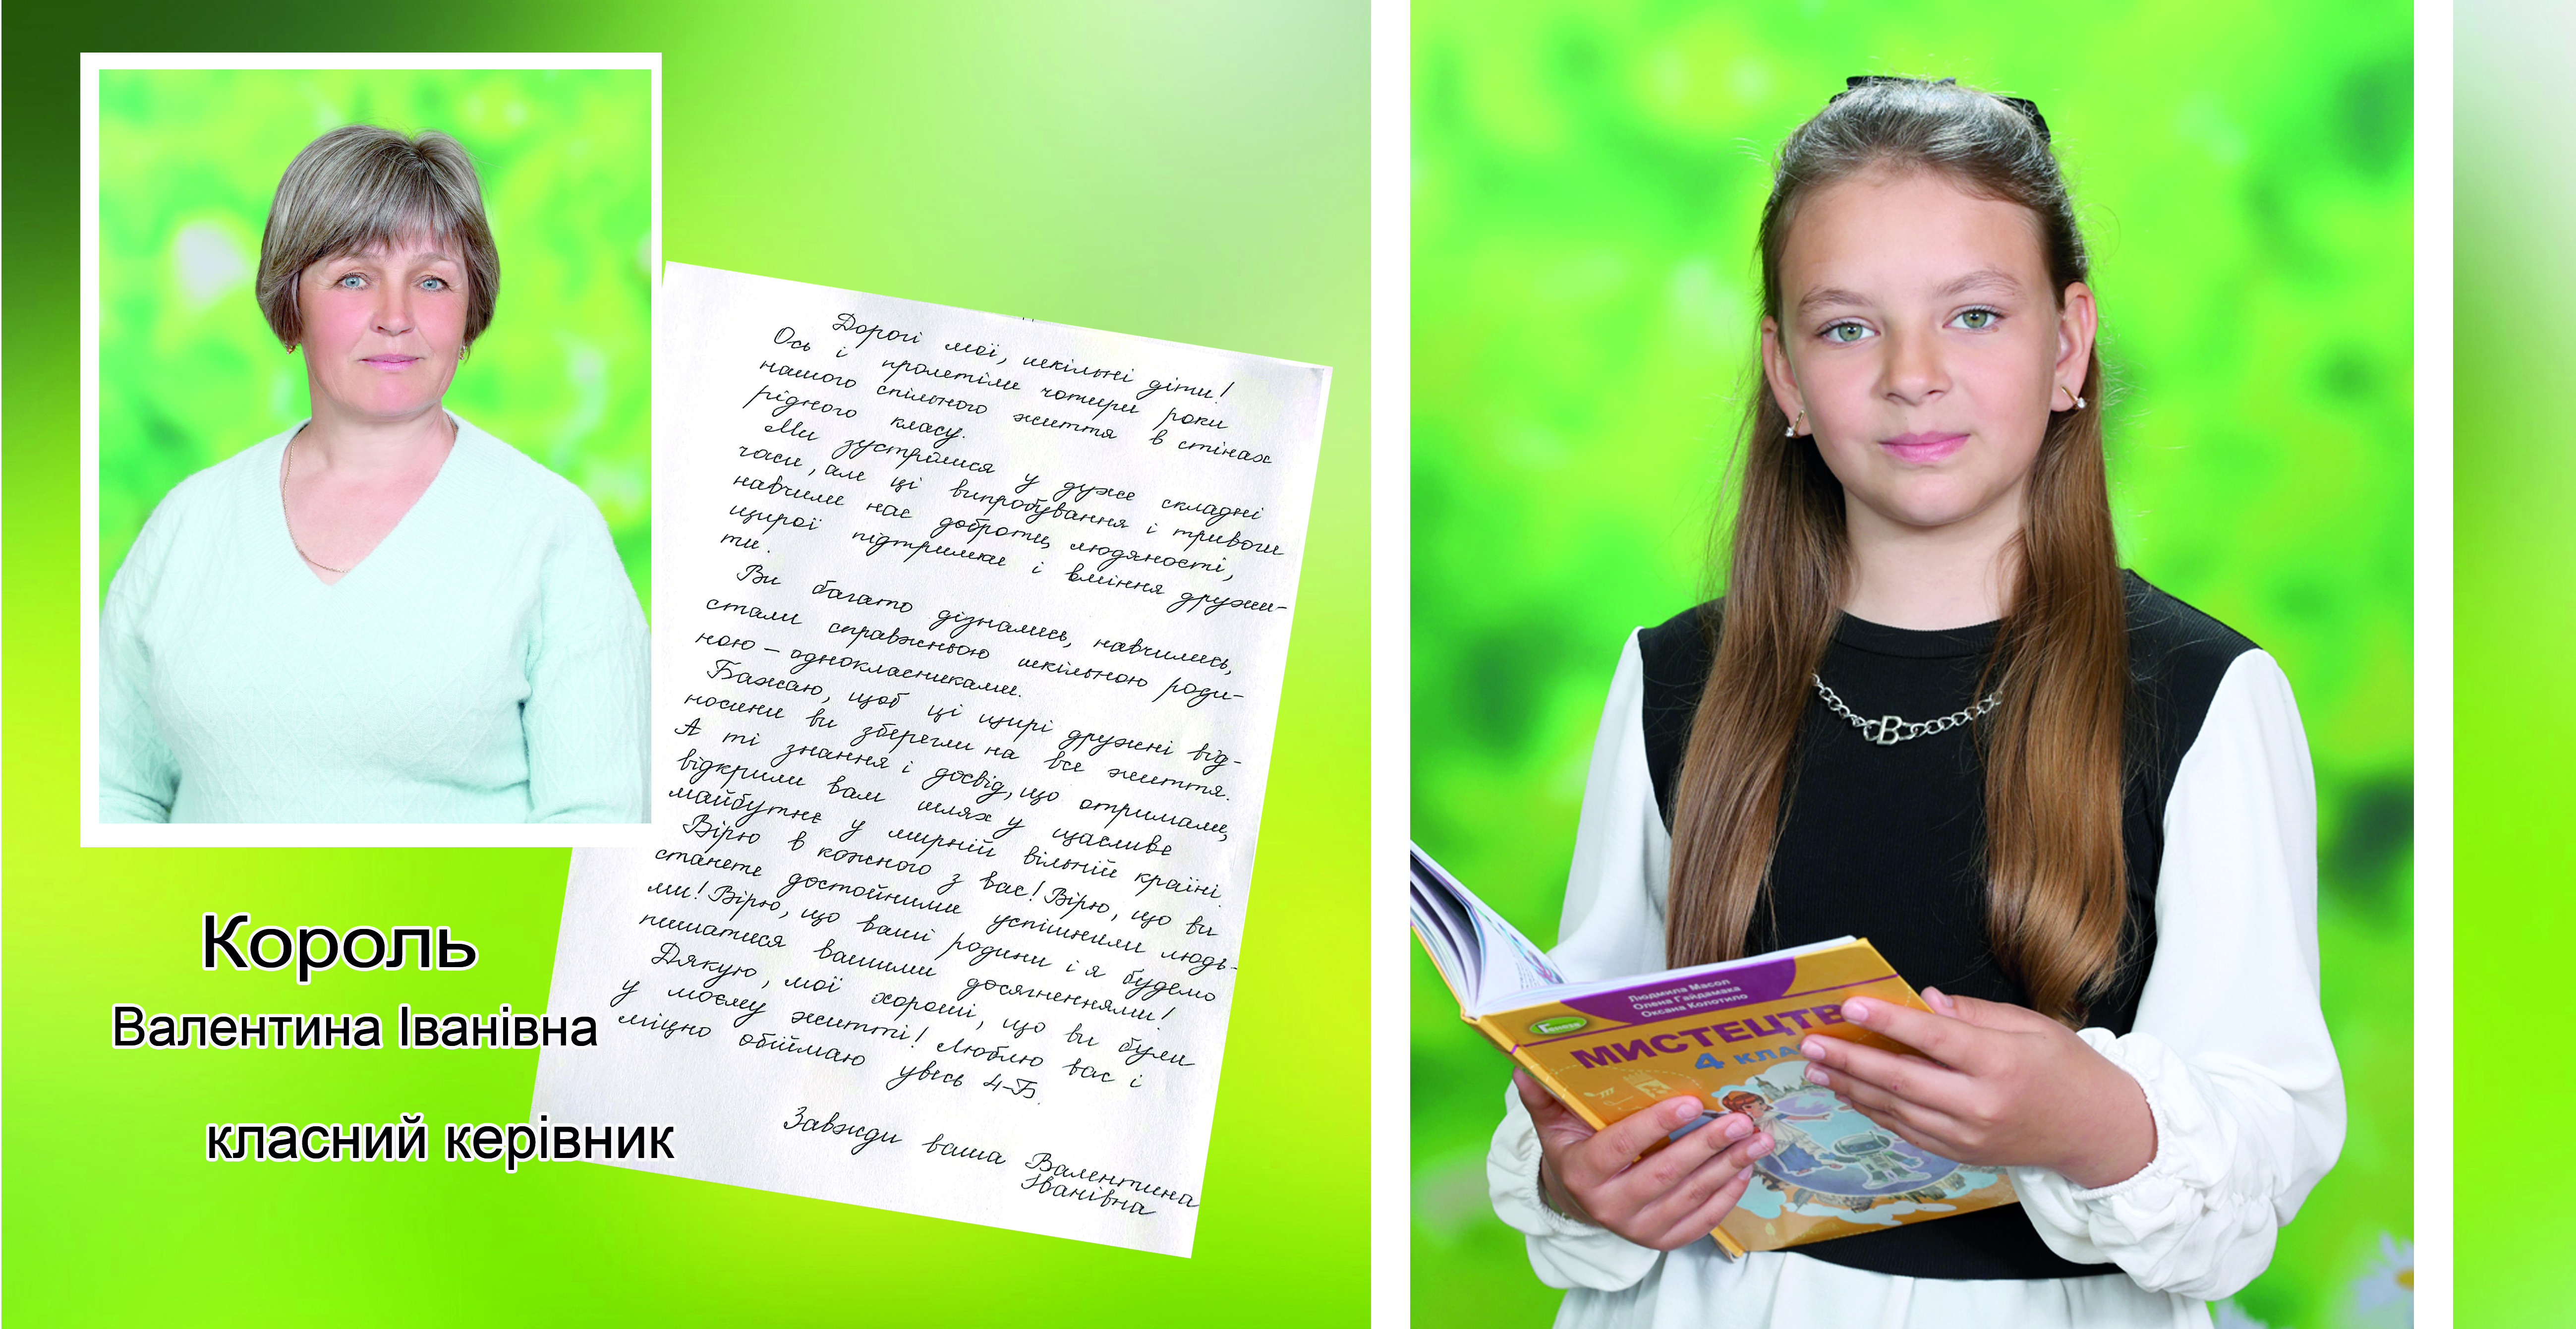 Дорогі мої, шкільні діти!
Ось і пролетіли чотири роки
нашого спільного життя в стінах
рідного класу.
Ми зустрілися у дуже складні
часи, але ці випробування і тривоги
навчили нас доброти, людяності,
щирої підтримки і вміння дружи-
ти.
Ви багато дізнались, навчились,
стали справжньою шкільною роди-
ною – однокласниками.
Бажаю, щоб ці щирі дружні від-
носини ви зберегли на все життя.
А ті знання і досвід, що отримали,
відкрили вам шлях у щасливе
майбутнє у мирній вільній країні.
Вірю в кожного з вас! Вірю, що ви
станете достойними успішними людь-
ми! Вірю, що ваші родини і я будемо
пишатися вашими досягненнями!
Дякую, мої хороші, що ви були
у моєму житті! Люблю вас і
міцно обіймаю увесь 4-Б.
Завжди ваша Валентина
Іванівна
Король
Валентина Іванівна
класний керівник
Людмила Масол
Олена Гайдамака
Оксана Колотило
Генеза
МИСТЕЦТВ
4 КЛА
B